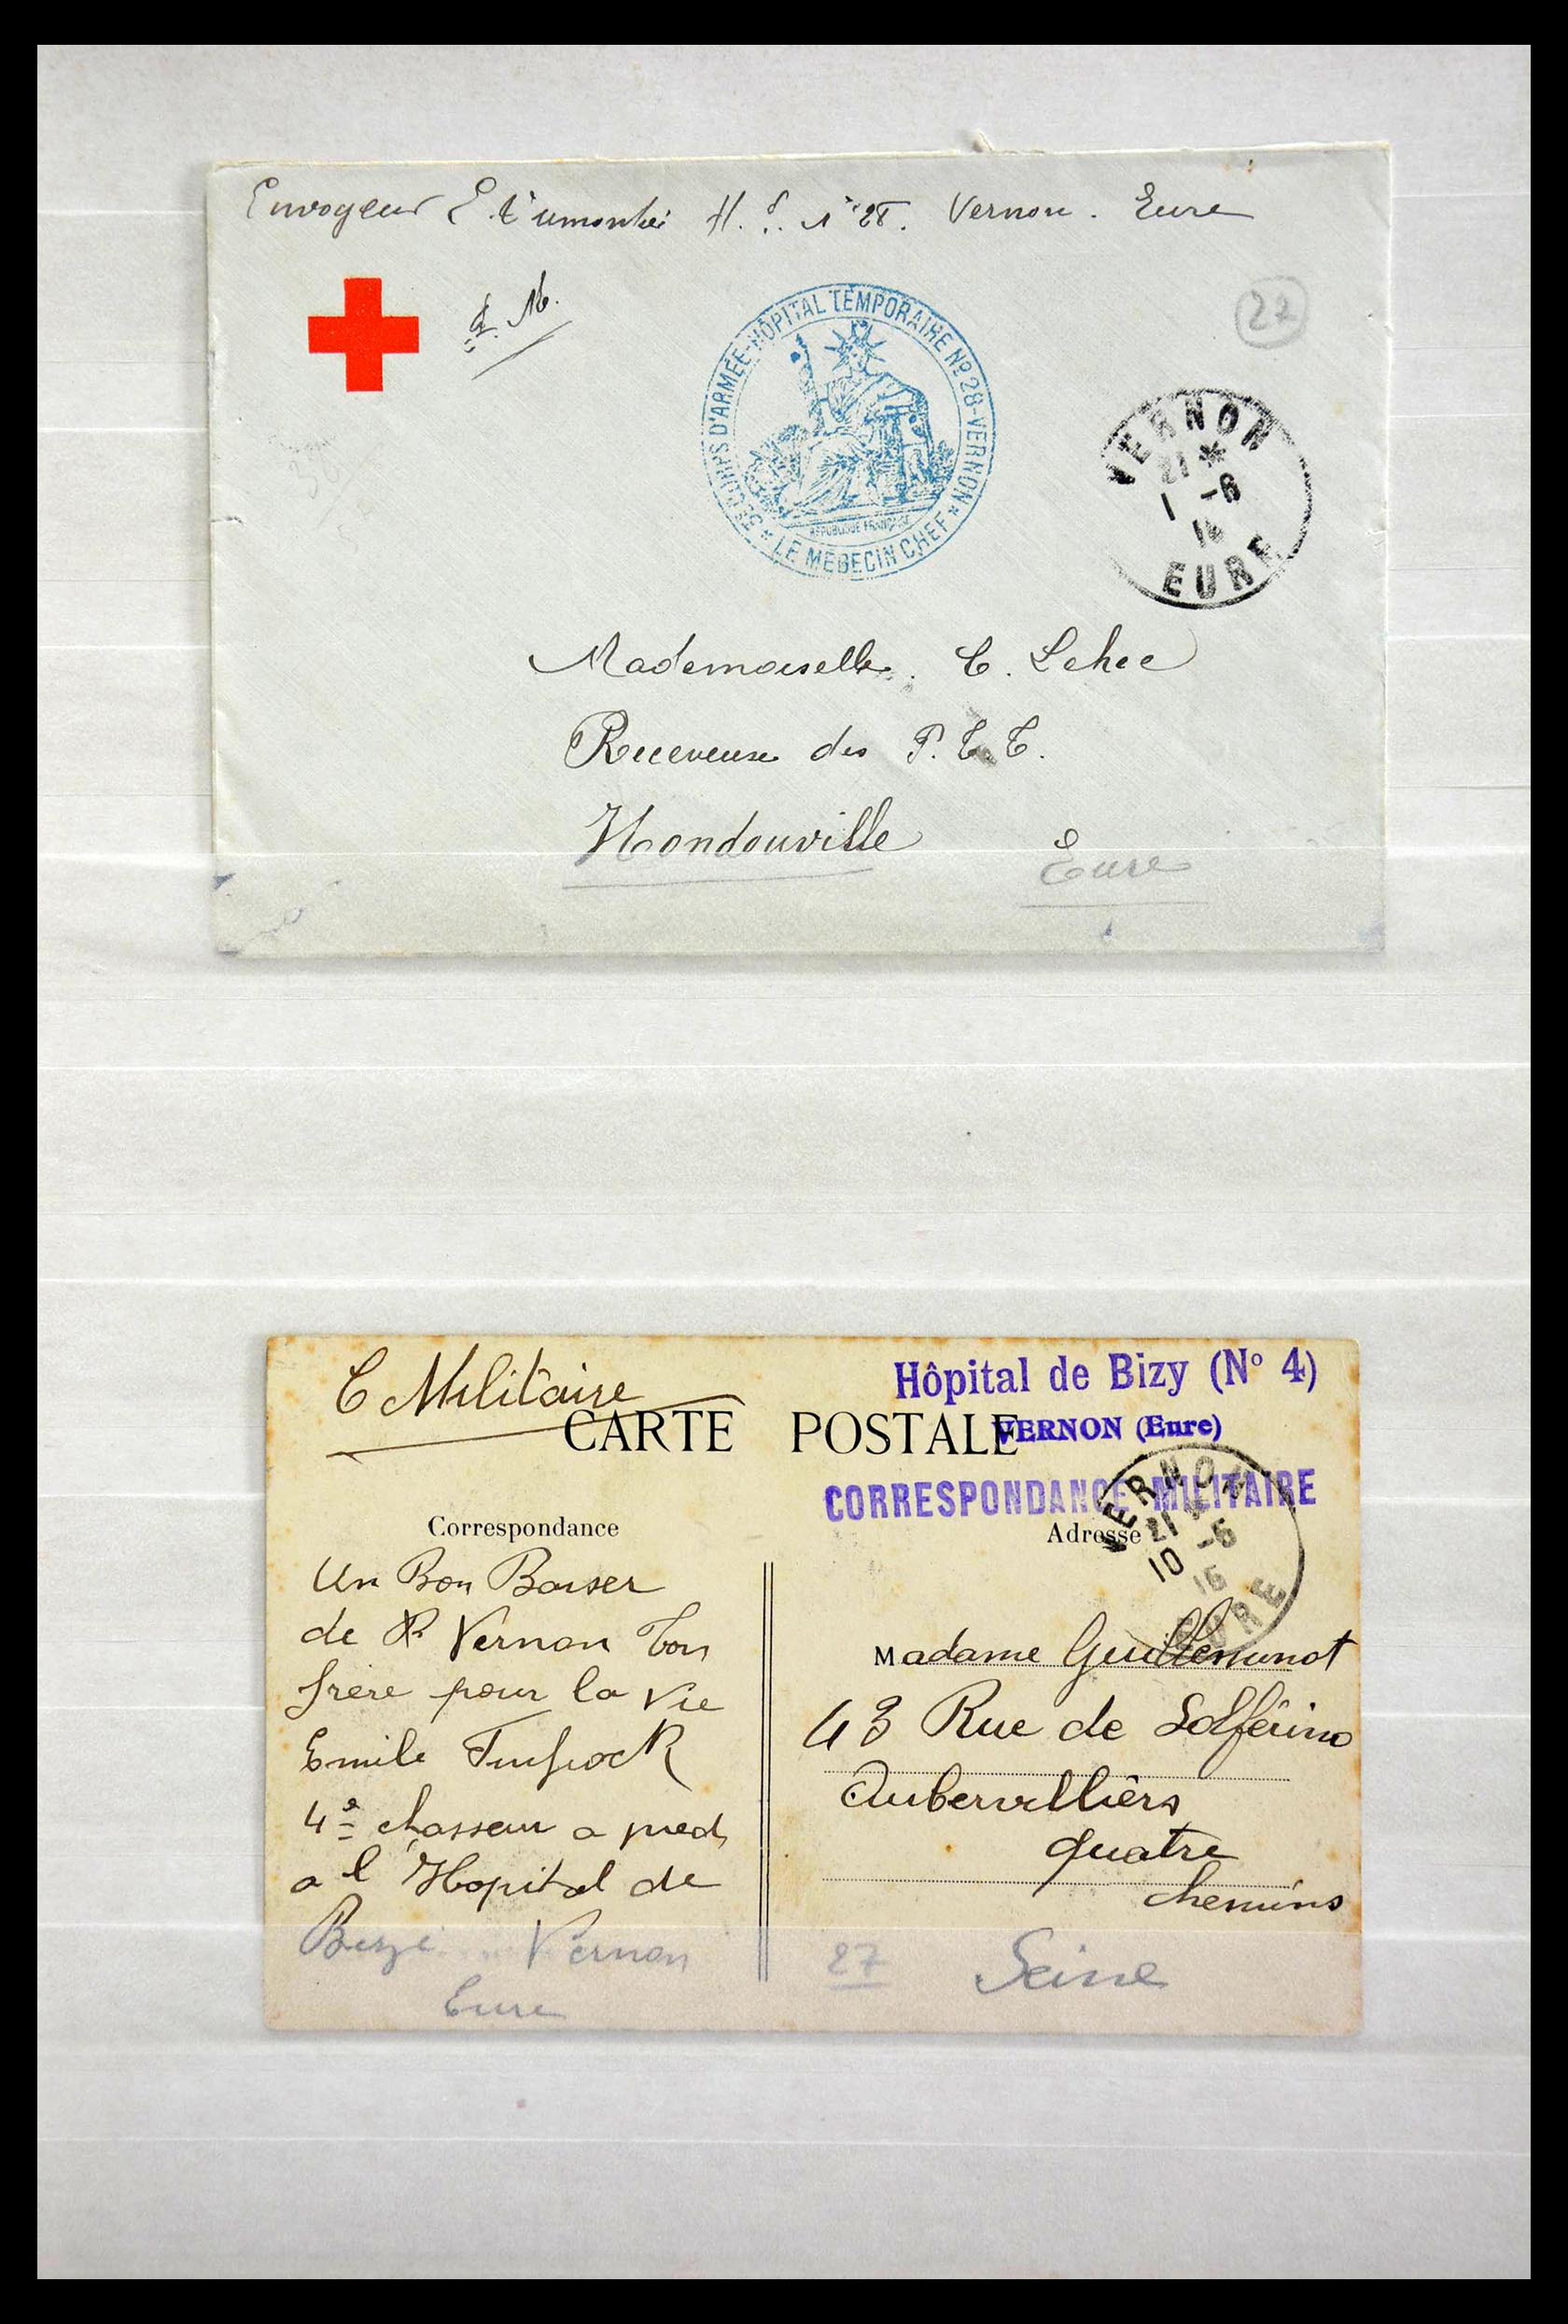 Envoyeur E. H. S. N° 28. Vernon. Eure
22
SECOURS D'ARMÉE-HÔPITAL TEMPORAIRE Nº 28-VERNON
* LE MÉDECIN CHEF *
RÉPUBLIQUE FRANÇAISE
VERNON
21 *
1 -6
EURE
Mademoiselle. C. Lehec
Receveuse des P. T. T.
Hondouville
Eure
C Militaire
Hôpital de Bizy (N° 4)
VERNON (Eure)
CARTE POSTALE
CORRESPONDANCE MILITAIRE
Correspondance
Adresse
VERNON
21 *
10 -6
16
EURE
Un Bon Baiser
de Vernon Ton
frère pour la vie
Emile
4e chasseur a pied
a l'Hopital de
Bizi Vernon
Eure
Madame Guillemunot
43 Rue de Solférino
Aubervilliers
quatre
chemins
27
Seine